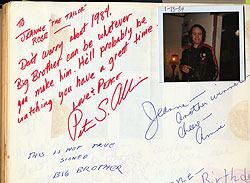 TO
JEANNE "THE TAILOR"
ROSE
Don't worry about 1984.
Big Brother can be whatever
you make him. He'll probably be
watching you have a great time.
Love & Peace
Peter S. Alli
THIS IS NOT TRUE
SIGNED
BIG BROTHER
1-25-84
Jeanne
Another winner
Cheers
Anne
Birthday